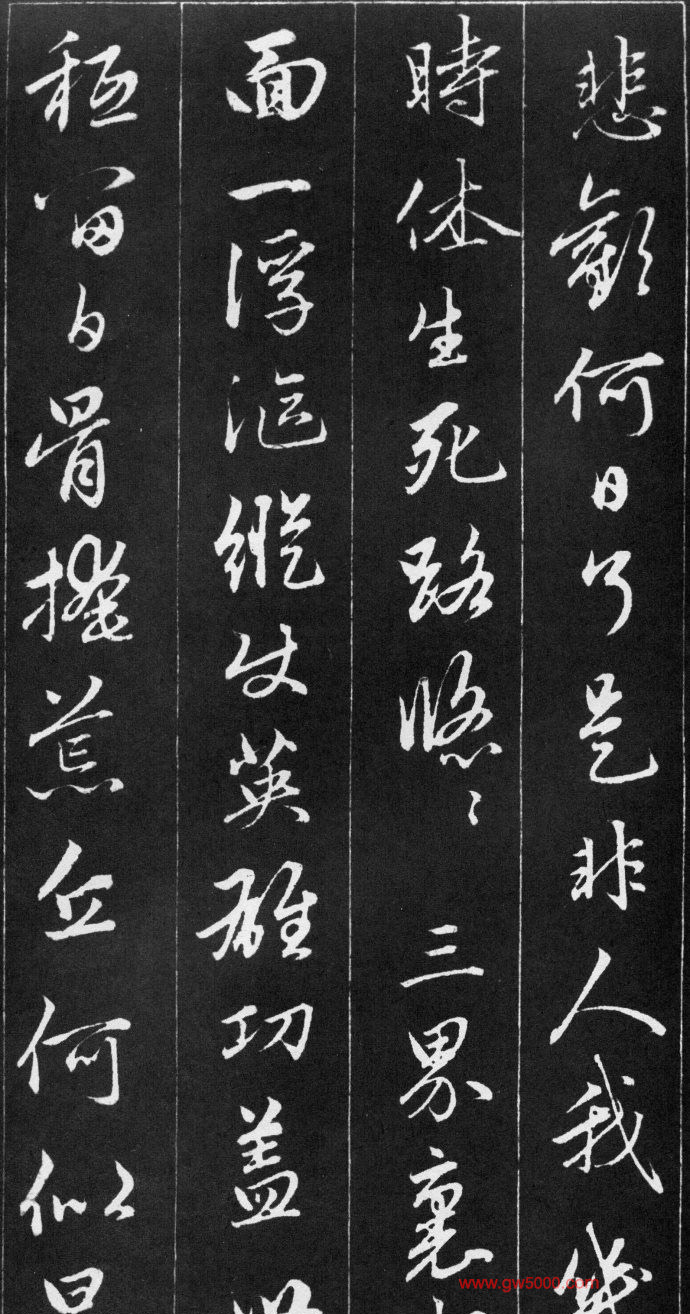 悲歡何日了是非人我幾
時休生死路悠〻 三界裏
面一浮漚縱使英雄功盖
秪留白骨掩荒丘何似
www.gw5000.com